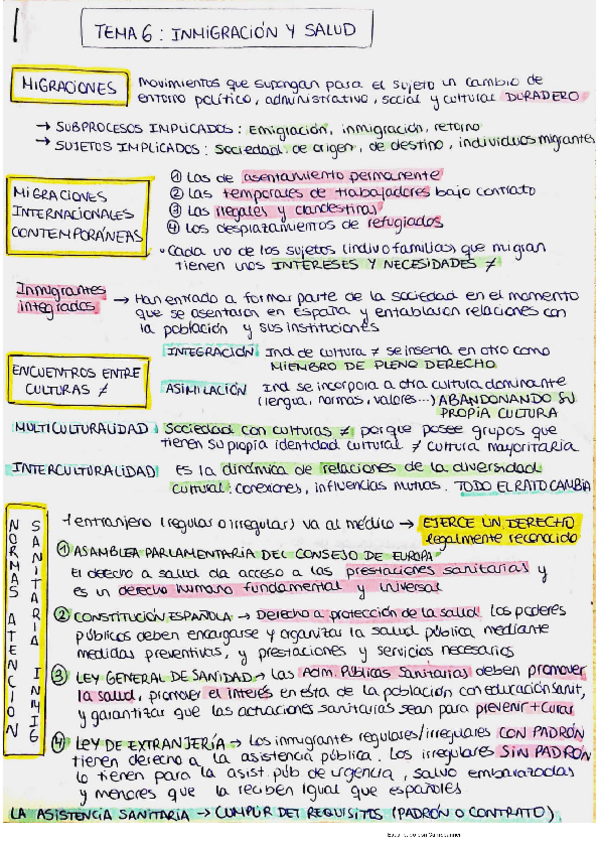 TEMA 6: INMIGRACIÓN Y SALUD
MIGRACIONES
Movimientos que supongan para el sujeto un cambio de
entorno político, administrativo, social y cultural DURADERO
→ SUBPROCESOS IMPLICADOS: Emigración, inmigración, retorno
→ SUJETOS IMPLICADOS: Sociedad de origen, de destino, individuos migrantes
MIGRACIONES
INTERNACIONALES
CONTEMPORÁNEAS
① Las de asentamiento permanente
② Las temporales de trabajadores bajo contrato
③ Las ilegales y clandestinas
④ Los desplazamientos de refugiados
· Cada uno de los sujetos (indiv o familias) que migran
tienen unos INTERESES Y NECESIDADES ≠
Inmigrantes
integrados
→ Han entrado a formar parte de la sociedad en el momento
que se asentaron en España y entablaron relaciones con
la población y sus instituciones
ENCUENTROS ENTRE
CULTURAS ≠
INTEGRACIÓN Ind. de cultura ≠ se inserta en otro como
MIEMBRO DE PLENO DERECHO
ASIMILACIÓN Ind se incorpora a otra cultura dominante
(lengua, normas, valores...) ABANDONANDO SU
PROPIA CULTURA
MULTICULTURALIDAD Sociedad con culturas ≠ porque posee grupos que
tienen su propia identidad cultural ≠ cultura mayoritaria
INTERCULTURALIDAD Es la dinámica de relaciones de la diversidad
cultural: conexiones, influencias mutuas. TODO EL RATO CAMBIA
NORMAS ATENCION
SANITARIA INMIG
extranjero (regular o irregular) va al médico → EJERCE UN DERECHO
legalmente reconocido
① ASAMBLEA PARLAMENTARIA DEL CONSEJO DE EUROPA
El derecho a salud da acceso a las prestaciones sanitarias y
es un derecho humano fundamental y universal
② CONSTITUCIÓN ESPAÑOLA → Derecho a protección de la salud los poderes
públicos deben encargarse y organizar la salud pública mediante
medidas preventivas, y prestaciones y servicios necesarios
③ LEY GENERAL DE SANIDAD → Las Adm. Públicas Sanitarias deben promover
la salud, promover el interés en esta de la población con educación sanit,
y garantizar que las actuaciones sanitarias sean para prevenir + curar
④ LEY DE EXTRANJERÍA → Los inmigrantes regulares/irregulares CON PADRÓN
tienen derecho a la asistencia pública. Los irregulares SIN PADRÓN
lo tienen para la asist. púb de urgencia, salvo embarazadas
y menores que la reciben igual que españoles
LA ASISTENCIA SANITARIA → CUMPLIR DET REQUISITOS (PADRÓN O CONTRATO)